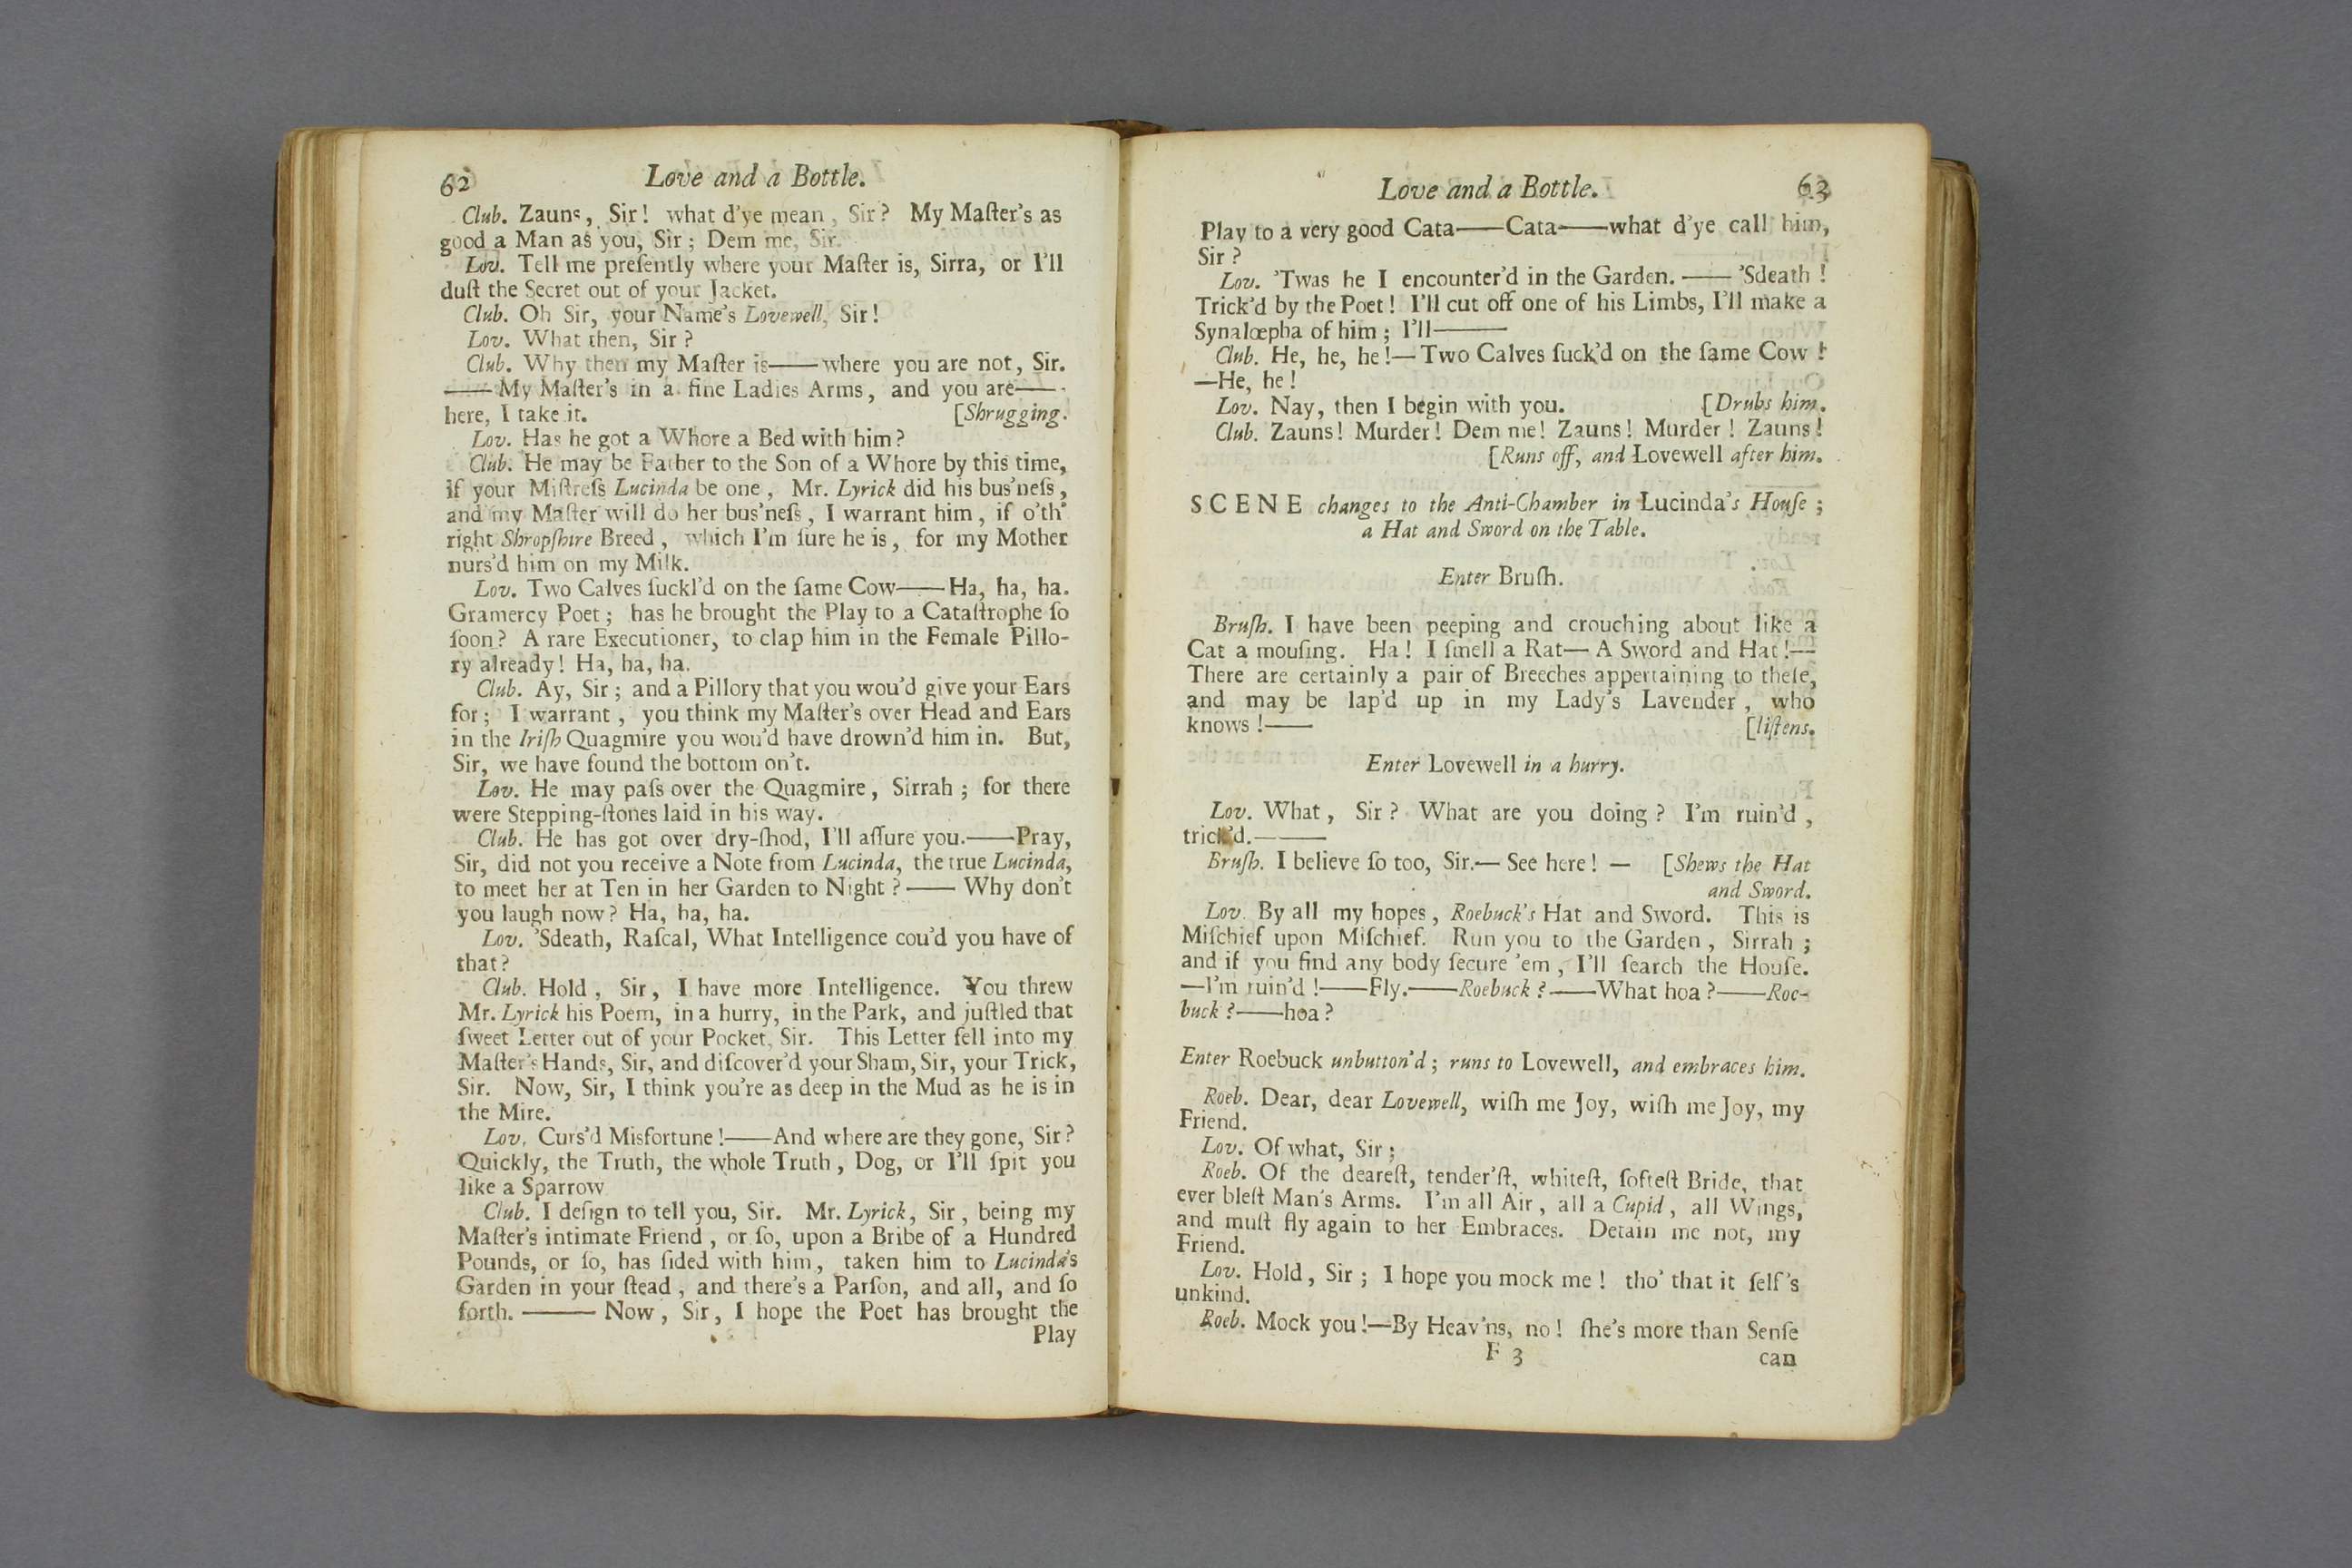 62
Love and a Bottle.
Club. Zauns, Sir! what d'ye mean, Sir? My Maſter's as
good a Man as you, Sir; Dem me, Sir.
Lov. Tell me preſently where your Maſter is, Sirra, or I'll
duſt the Secret out of your Jacket.
Club. Oh Sir, your Name's Lovewell, Sir!
Lov. What then, Sir?
Club. Why then my Maſter is——where you are not, Sir.
——My Maſter's in a fine Ladies Arms, and you are——
here, I take it. [Shrugging.
Lov. Has he got a Whore a Bed with him?
Club. He may be Father to the Son of a Whore by this time,
if your Miſtreſs Lucinda be one, Mr. Lyrick did his bus'neſs,
and my Maſter will do her bus'neſs, I warrant him, if o'th'
right Shropſhire Breed, which I'm ſure he is, for my Mother
nurs'd him on my Milk.
Lov. Two Calves ſuckl'd on the ſame Cow——Ha, ha, ha.
Gramercy Poet; has he brought the Play to a Cataſtrophe ſo
ſoon? A rare Executioner, to clap him in the Female Pillo-
ry already! Ha, ha, ha.
Club. Ay, Sir; and a Pillory that you wou'd give your Ears
for; I warrant, you think my Maſter's over Head and Ears
in the Iriſh Quagmire you wou'd have drown'd him in. But,
Sir, we have found the bottom on't.
Lov. He may paſs over the Quagmire, Sirrah; for there
were Stepping-ſtones laid in his way.
Club. He has got over dry-ſhod, I'll aſſure you.——Pray,
Sir, did not you receive a Note from Lucinda, the true Lucinda,
to meet her at Ten in her Garden to Night?——Why don't
you laugh now? Ha, ha, ha.
Lov. 'Sdeath, Raſcal, What Intelligence cou'd you have of
that?
Club. Hold, Sir, I have more Intelligence. You threw
Mr. Lyrick his Poem, in a hurry, in the Park, and juſtled that
ſweet Letter out of your Pocket, Sir. This Letter fell into my
Maſter's Hands, Sir, and diſcover'd your Sham, Sir, your Trick,
Sir. Now, Sir, I think you're as deep in the Mud as he is in
the Mire.
Lov. Curs'd Misfortune!——And where are they gone, Sir?
Quickly, the Truth, the whole Truth, Dog, or I'll ſpit you
like a Sparrow
Club. I deſign to tell you, Sir. Mr. Lyrick, Sir, being my
Maſter's intimate Friend, or ſo, upon a Bribe of a Hundred
Pounds, or ſo, has ſided with him, taken him to Lucinda's
Garden in your ſtead, and there's a Parſon, and all, and ſo
forth.——Now, Sir, I hope the Poet has brought the
Play
Love and a Bottle.
63
Play to a very good Cata——Cata——what d'ye call him,
Sir?
Lov. 'Twas he I encounter'd in the Garden.——'Sdeath!
Trick'd by the Poet! I'll cut off one of his Limbs, I'll make a
Synalœpha of him; I'll——
Club. He, he, he!—Two Calves ſuck'd on the ſame Cow!
—He, he!
Lov. Nay, then I begin with you. [Drubs him.
Club. Zauns! Murder! Dem me! Zauns! Murder! Zauns!
[Runs off, and Lovewell after him.
SCENE changes to the Anti-Chamber in Lucinda's Houſe;
a Hat and Sword on the Table.
Enter Bruſh.
Bruſh. I have been peeping and crouching about like a
Cat a mouſing. Ha! I ſmell a Rat—A Sword and Hat!—
There are certainly a pair of Breeches appertaining to theſe,
and may be lap'd up in my Lady's Lavender, who
knows!—— [liſtens.
Enter Lovewell in a hurry.
Lov. What, Sir? What are you doing? I'm ruin'd,
trick'd.——
Bruſh. I believe ſo too, Sir.—See here!— [Shews the Hat
and Sword.
Lov. By all my hopes, Roebuck's Hat and Sword. This is
Miſchief upon Miſchief. Run you to the Garden, Sirrah;
and if you find any body ſecure 'em, I'll ſearch the Houſe.
—I'm ruin'd!——Fly.——Roebuck?——What hoa?——Roe-
buck?——hoa?
Enter Roebuck unbutton'd; runs to Lovewell, and embraces him.
Roeb. Dear, dear Lovewell, wiſh me Joy, wiſh me Joy, my
Friend.
Lov. Of what, Sir;
Roeb. Of the deareſt, tender'ſt, whiteſt, ſofteſt Bride, that
ever bleſt Man's Arms. I'm all Air, all a Cupid, all Wings,
and muſt fly again to her Embraces. Detain me not, my
Friend.
Lov. Hold, Sir; I hope you mock me! tho' that it ſelf's
unkind.
Roeb. Mock you!—By Heav'ns, no! ſhe's more than Senſe
F 3
can